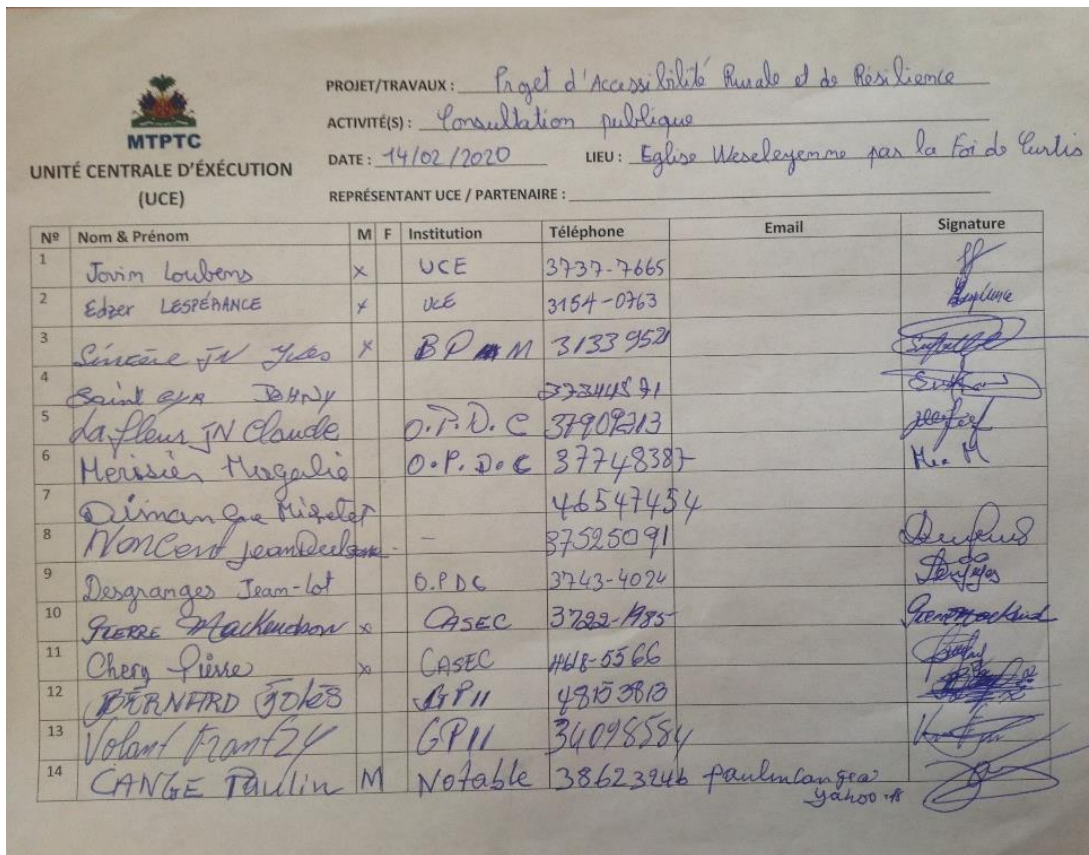 MTPTC
UNITÉ CENTRALE D'ÉXÉCUTION
(UCE)
PROJET/TRAVAUX : Projet d'Accessibilité Rurale et de Résilience
ACTIVITÉ(S) : Consultation publique
DATE : 14/02/2020 LIEU : Eglise Weseleyenne par la Foi de Curtis
REPRÉSENTANT UCE / PARTENAIRE :
Nº Nom & Prénom M F Institution Téléphone Email Signature
1 Jovin Loubens x UCE 3737-7665
2 Edzer LESPÉRANCE x UCE 3154-0763
3 Sincère JN Yves x 31339521
4 Saint JOHNY 37344871
5 Lafleur JN Claude O.P.D.C 37909213
6 Merisier Magalie O.P.D.C 37748387 Mer M
7 46547454
8 NonCent - 37525091
9 Desgranges Jean-Lot O.PDC 3743-4024
10 PIERRE Mackendson x CASEC 3722-1985
11 Chery Pierre x CASEC
12 BERNARD GP11 48153813
13 Volant Frantzy GP11 34098584
14 CANGE Paulin M Notable 38623246